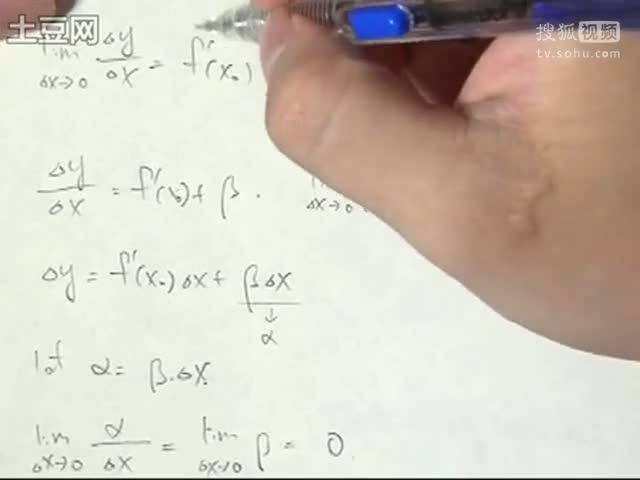 土豆网
搜狐视频
tv.sohu.com
lim Δx→0 Δy/Δx = f'(x₀)
Δy/Δx = f'(x₀) + β . lim Δx→0
Δy = f'(x₀) Δx + β Δx
↓
α
let α = β·Δx.
lim Δx→0 α/Δx = lim Δx→0 β = 0